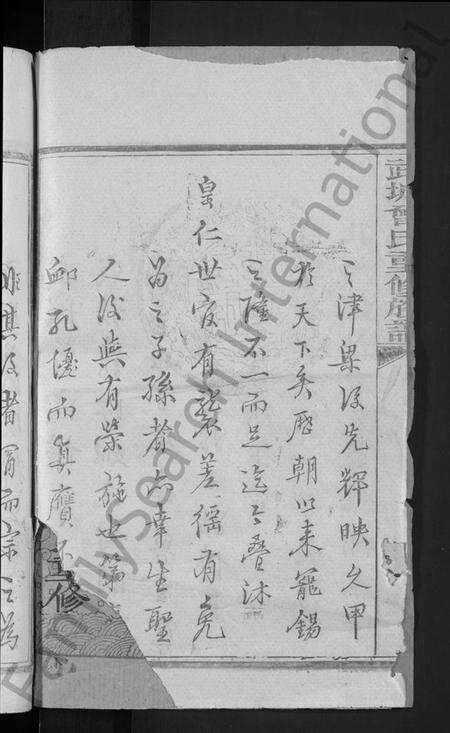 武城曾氏重修族譜
之津梁後先輝映久甲
於天下矣歷朝以來寵錫
之隆不一而足迄今疊沐
皇仁世官有襲差徭有免
為之子孫者亦幸生聖
人後與有榮施也第
卹孔優而真贗不
重修
非其後者冒而宗之為
FamilySearch International